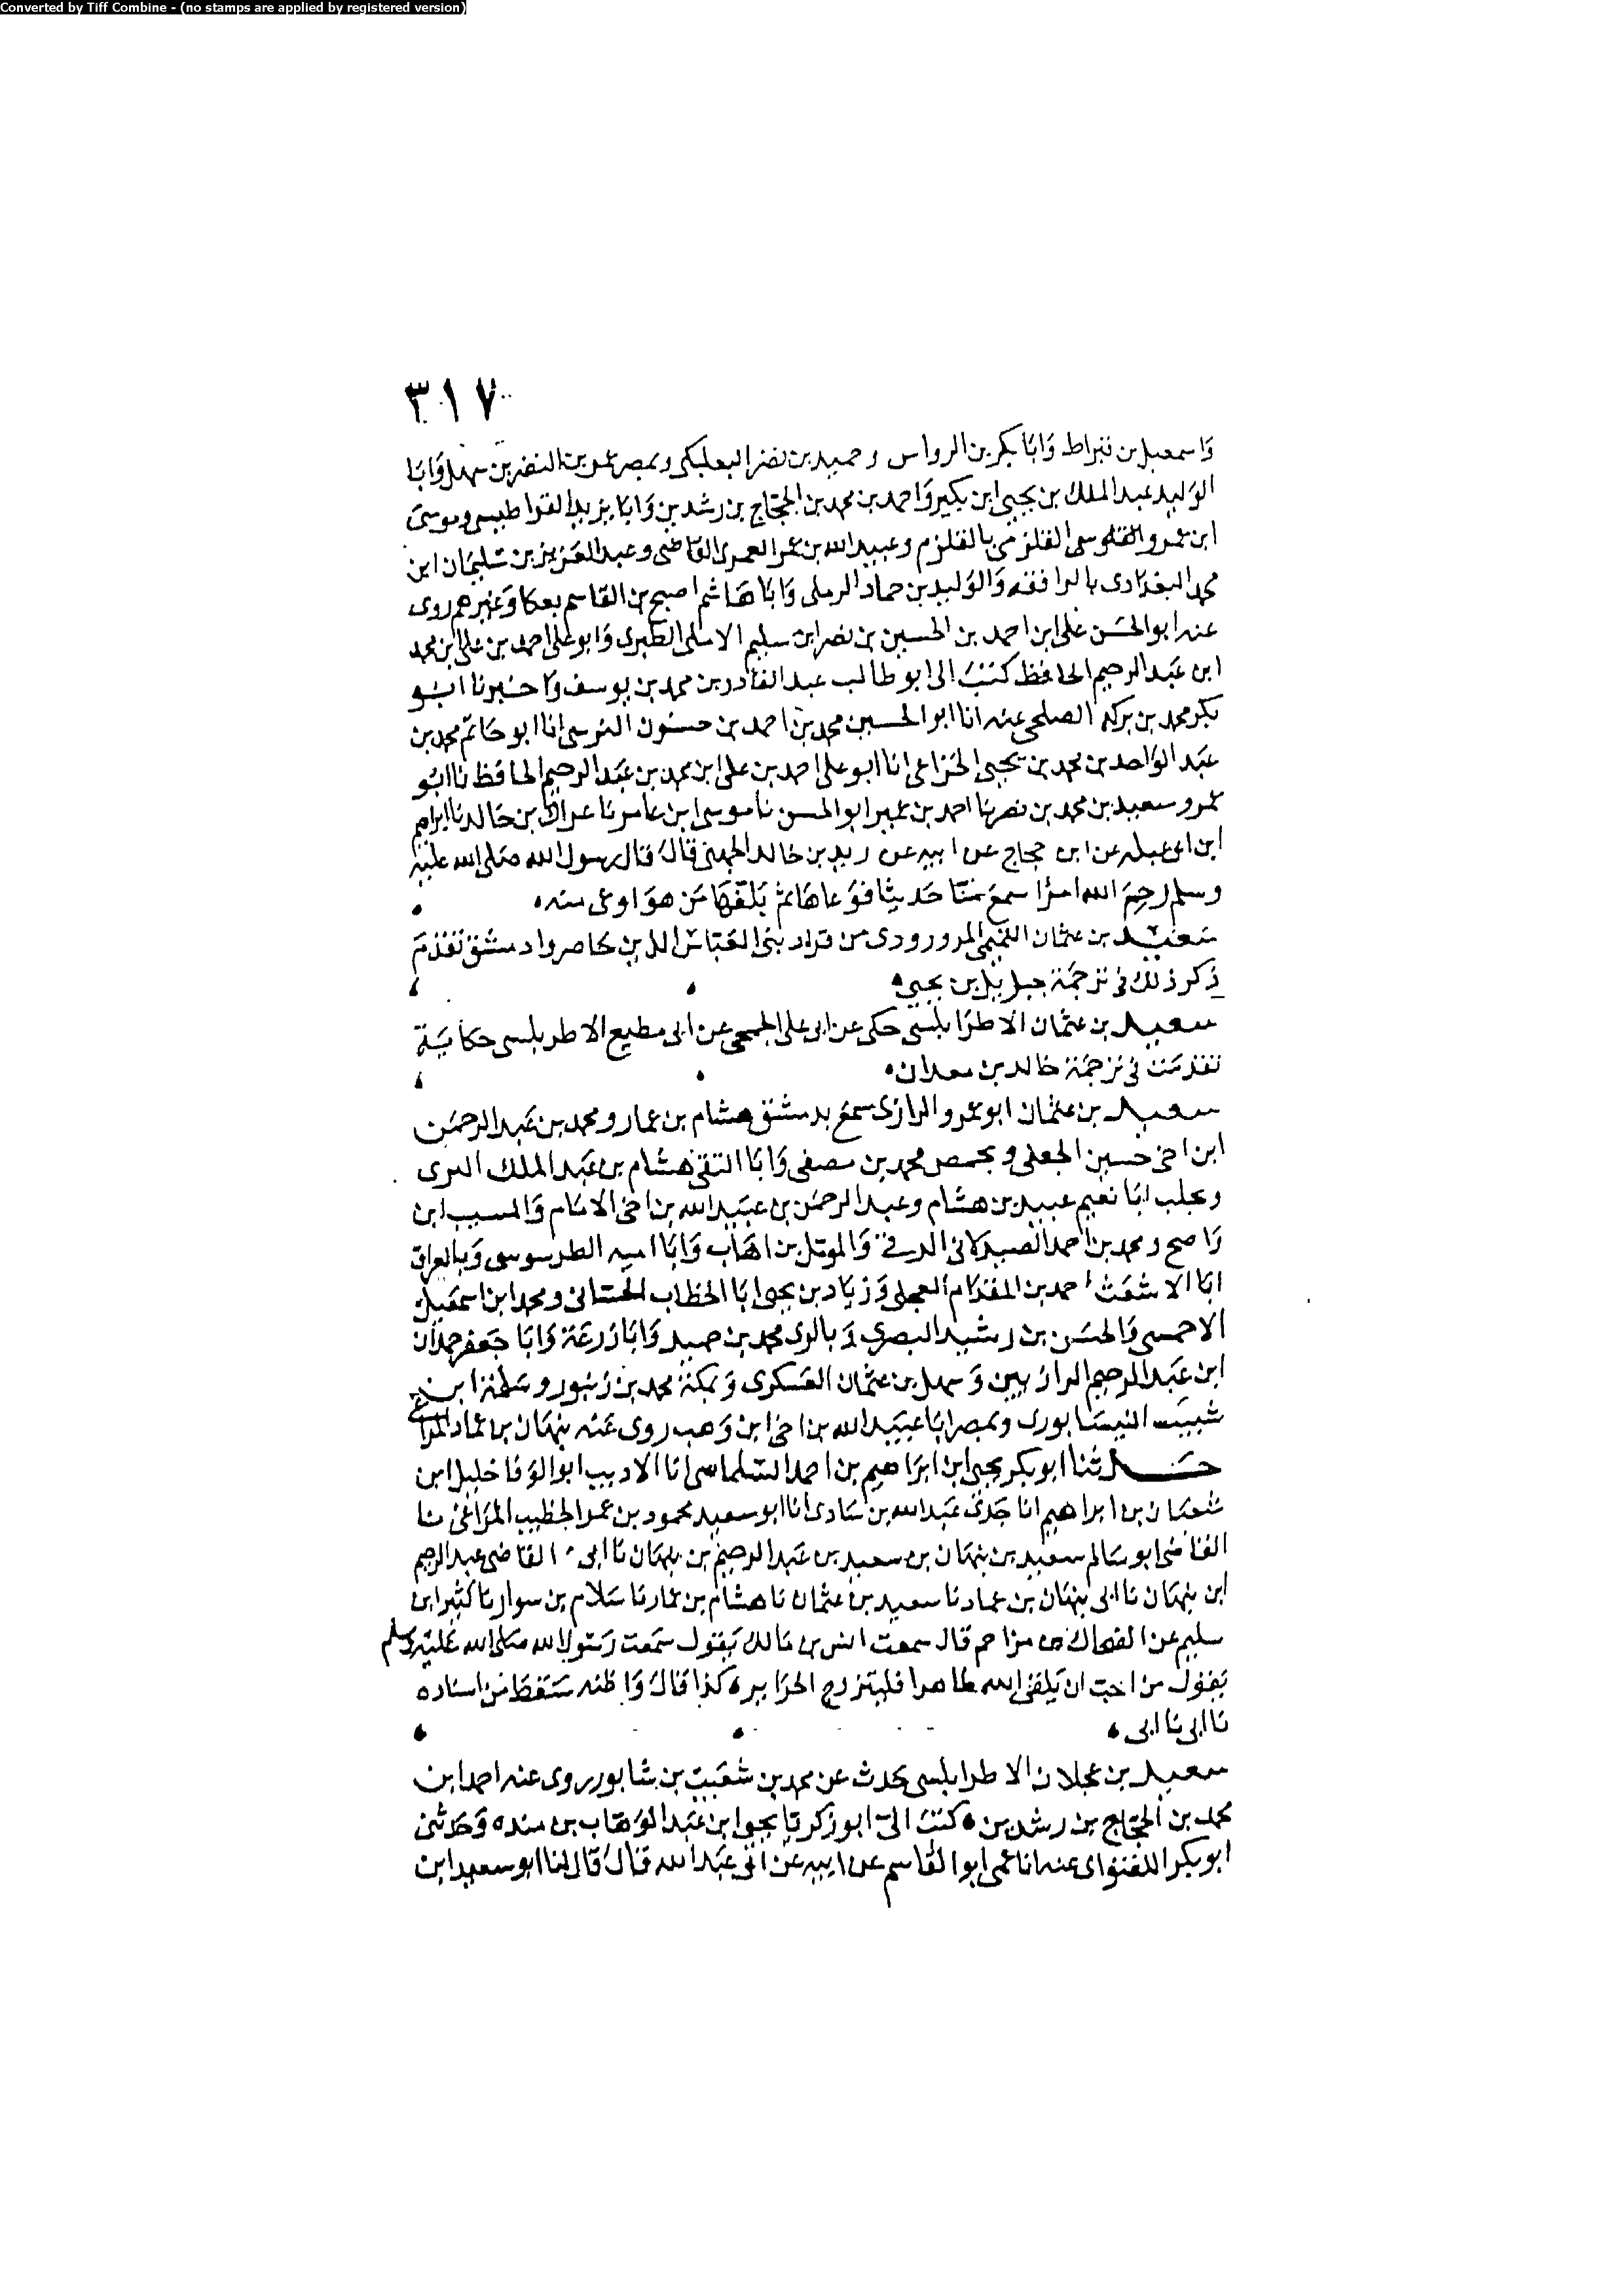 Converted by Tiff Combine - (no stamps are applied by registered version)
٣١٧
واسمعيل بن قيراط وابا بكر بن الرواس وحميد بن نصر البعلبكى وبمصر عمر بن النضر بن سهل وابا
الوليد عبد الملك بن يحيى ابن بكير واحمد بن محمد بن الحجاج بن رشدين وابا يزيد القراطيسى وموسى
ابن عمرو القلزمى بالقلزم وعبيد الله بن عمر العمرى القاضى وعبد العزيز بن سليمان ابن
محمد البغدادى بالرافقه والوليد بن حماد الرملى وابا هاشم اصبح بن القاسم بعكا وغيرهم روى
عنه ابو الحسن على ابن احمد بن الحسين بن نصر ابن سليم الاسلى الطبرى وابو على احمد بن على ابن محمد
ابن عبد الرحيم الحافظ كتب الى ابو طالب عبد القادر بن محمد بن يوسف واخبرنا ابو
بكر محمد بن بركه الصلحى عنه انا ابو الحسين محمد بن احمد بن حسنون النرسى انا ابو حاتم محمد بن
عبد الواحد بن محمد بن يحيى الخزاعى انا ابو على احمد بن على ابن محمد بن عبد الرحيم الحافظ نا ابو
عمرو سعيد بن محمد بن نصر نا احمد بن عمير ابو الحسن نا موسى ابن عامر نا عراك بن خالد نا ابرهيم
ابن ابى عبله عن ابن حجاج عن ابيه عن زيد بن خالد الجهنى قال قال رسول الله صلى الله عليه
وسلم رحم الله امرا سمع منا حديثا فوعاها ثم بلغها من هو اوعى منه
سعيد بن عثمان التميمى المروروذى من قواد بنى العباس الذين حاصروا دمشق تقدم
ذكر ذلك فى ترجمة جبريل بن يحيى
سعيد بن عثمان الاطرابلسى حكى عن ابى على الجمحى عن ابى مطيع الاطربلسى حكاية
تقدمت فى ترجمة خالد بن معدان
سعيد بن عثمان ابو عمرو الرازى سمع بدمشق هشام بن عمار ومحمد بن عبد الرحمن
ابن اخى حسين الجعفى وبحمص محمد بن مصفى وابا التقى هشام بن عبد الملك اليزنى
وبحلب ابا نعيم عبيد بن هشام وعبد الرحمن بن عبيد الله بن اخى الامام والمسيب ابن
واضح ومحمد بن احمد الصيدلانى الرقى والموئل بن اهاب وابا اميه الطرسوسى وبالعراق
ابا الاشعث احمد بن المقدام العجلى وزياد بن يحيى ابا الخطاب الحسانى ومحمد ابن اسمعيل
الاحمسى والحسن بن رشيد البصرى وبالرى محمد بن حميد وابا زرعة وابا جعفر حمدان
ابن عبد الرحيم الرازيين وسهل بن عثمان العسكرى وبمكة محمد بن زنبور وسلمة ابن
شبيب النيسابورى وبمصر ابا عبيد الله بن اخى ابن وهب روى عنه بنهان بن عماد المراغى
حدثنا ابو بكر يحيى ابن ابراهيم بن احمد السلماسى انا الاديب ابو الوفا خليل ابن
شعبان بن ابراهيم انا جدى عبد الله بن شادى انا ابو سعيد محمود بن عمر الخطيب المراغى نا
القاضى ابو سالم سعيد بن بنهان بن سعيد بن عبد الرحيم بن بنهان نا ابى القاضى عبد الرحيم
ابن بنهان نا ابى بنهان بن عماد نا سعيد بن عثمان نا هشام بن عمار نا سلام بن سوار نا كثير ابن
سليم عن الضحاك بن مزاحم قال سمعت انس بن مالك يقول سمعت رسول الله صلى الله عليه وسلم
يقول من احب ان يلقى الله طاهرا فليتزوج الحراير كذا قال واظنه سقط من اسناده
نا ابى نا ابى
سعيد بن عجلان الاطرابلسى يحدث عن محمد بن شعيب بن شابور روى عنه احمد ابن
محمد بن الحجاج بن رشدين كتب الى ابو زكريا يحيى ابن عبد الوهاب بن منده وحدثنى
ابو بكر اللفتوانى عنه انا عمى ابو القاسم عن ابيه عن ابى عبد الله قال قال لنا ابو سعيد ابن